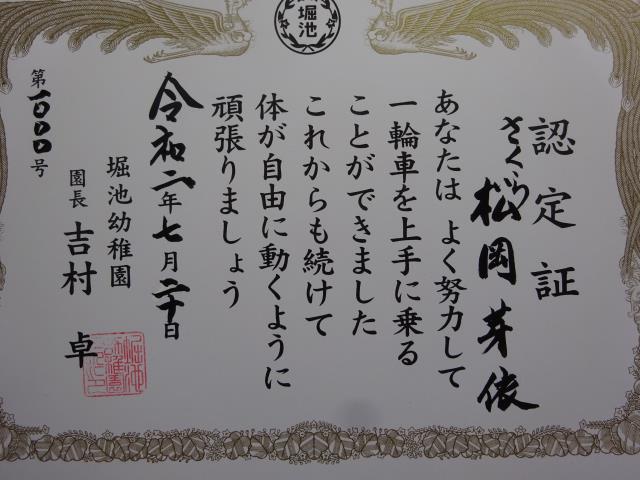 堀池
認定証
さくら
松岡芽依
あなたは よく努力して
一輪車を上手に乗る
ことができました
これからも続けて
体が自由に動くように
頑張りましょう
令和二年七月二十日
堀池幼稚園
園長 吉村 卓
第一〇〇〇号